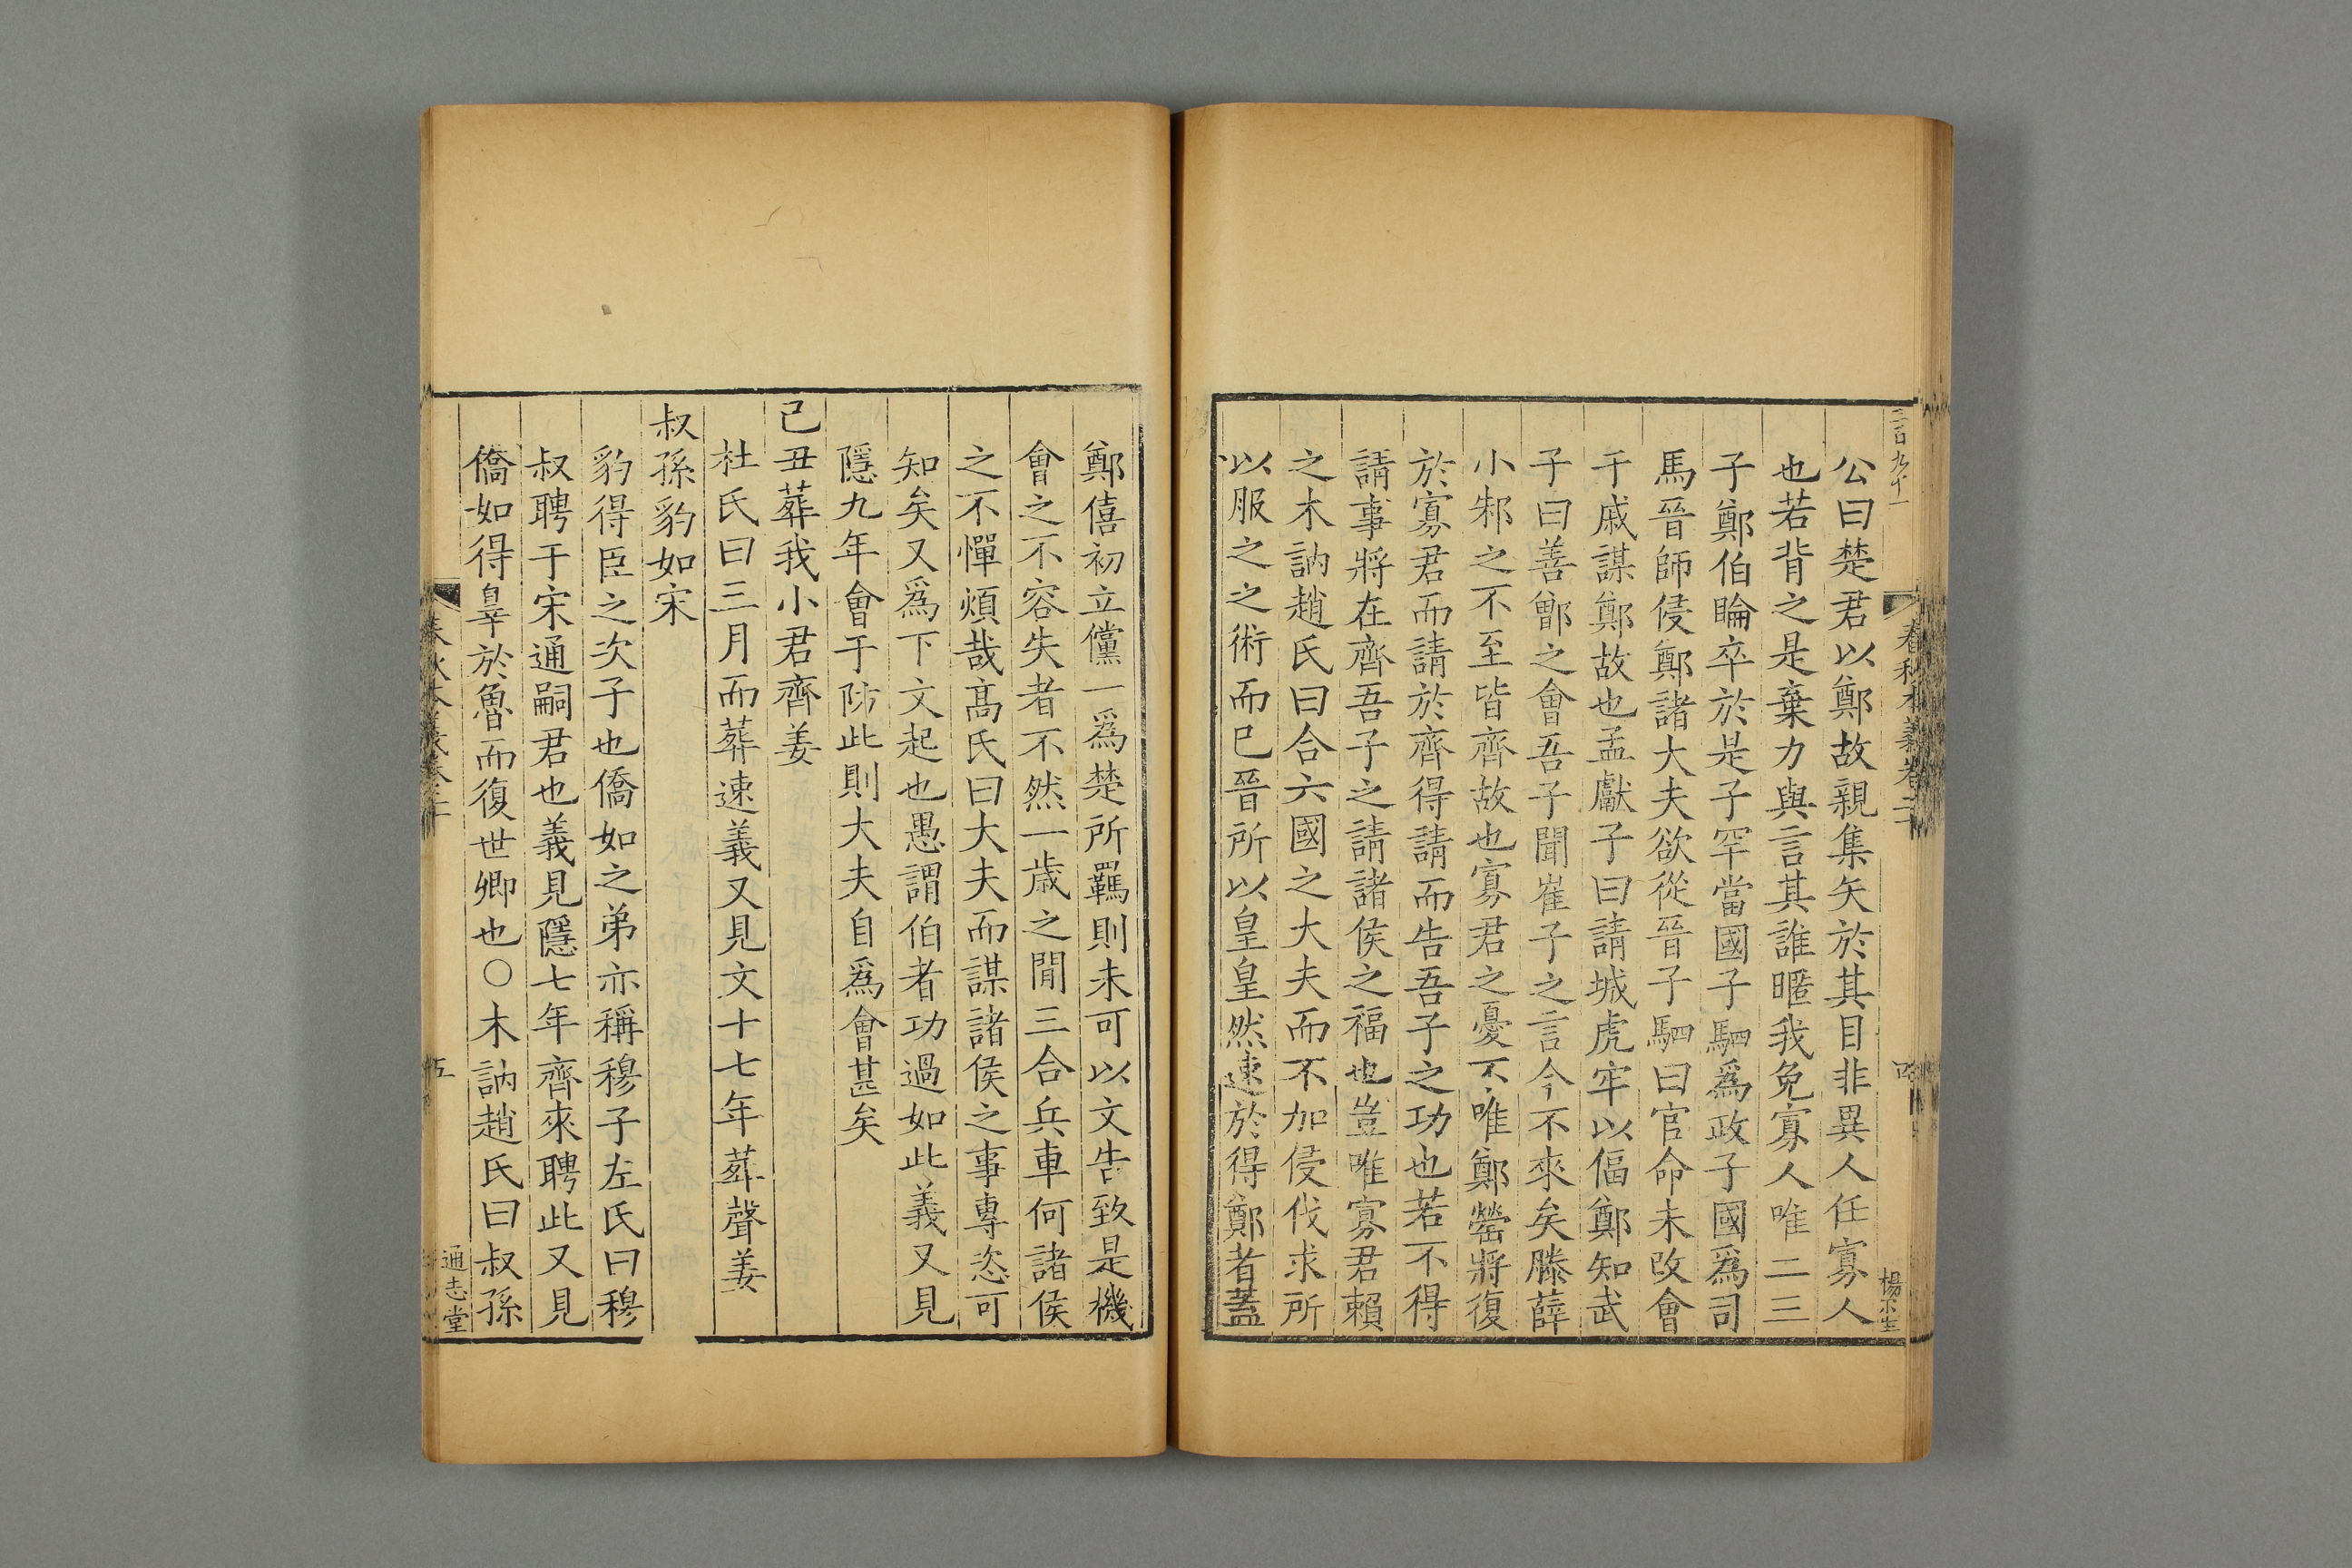 三百九十一
春秋本義卷二十
四
公曰楚君以鄭故親集矢於其目非異人任寡人
也若背之是棄力與言其誰暱我免寡人唯二三
子鄭伯睔卒於是子罕當國子駟爲政子國爲司
馬晉師侵鄭諸大夫欲從晉子駟曰官命未改會
于戚謀鄭故也孟獻子曰請城虎牢以偪鄭知武
子曰善鄫之會吾子聞崔子之言今不來矣滕薛
小邾之不至皆齊故也寡君之憂不唯鄭罃將復
於寡君而請於齊得請而告吾子之功也若不得
請事將在齊吾子之請諸侯之福也豈唯寡君賴
之木訥趙氏曰合六國之大夫而不加侵伐求所
以服之之術而已晉所以皇皇然速於得鄭者蓋
鄭僖初立儻一爲楚所羈則未可以文告致是機
會之不容失者不然一歲之間三合兵車何諸侯
之不憚煩哉高氏曰大夫而謀諸侯之事專恣可
知矣又爲下文起也愚謂伯者功過如此義又見
隱九年會于防此則大夫自爲會甚矣
己丑葬我小君齊姜
杜氏曰三月而葬速義又見文十七年葬聲姜
叔孫豹如宋
豹得臣之次子也僑如之弟亦稱穆子左氏曰穆
叔聘于宋通嗣君也義見隱七年齊來聘此又見
僑如得辠於魯而復世卿也○木訥趙氏曰叔孫
春秋本義卷二十
五
通志堂